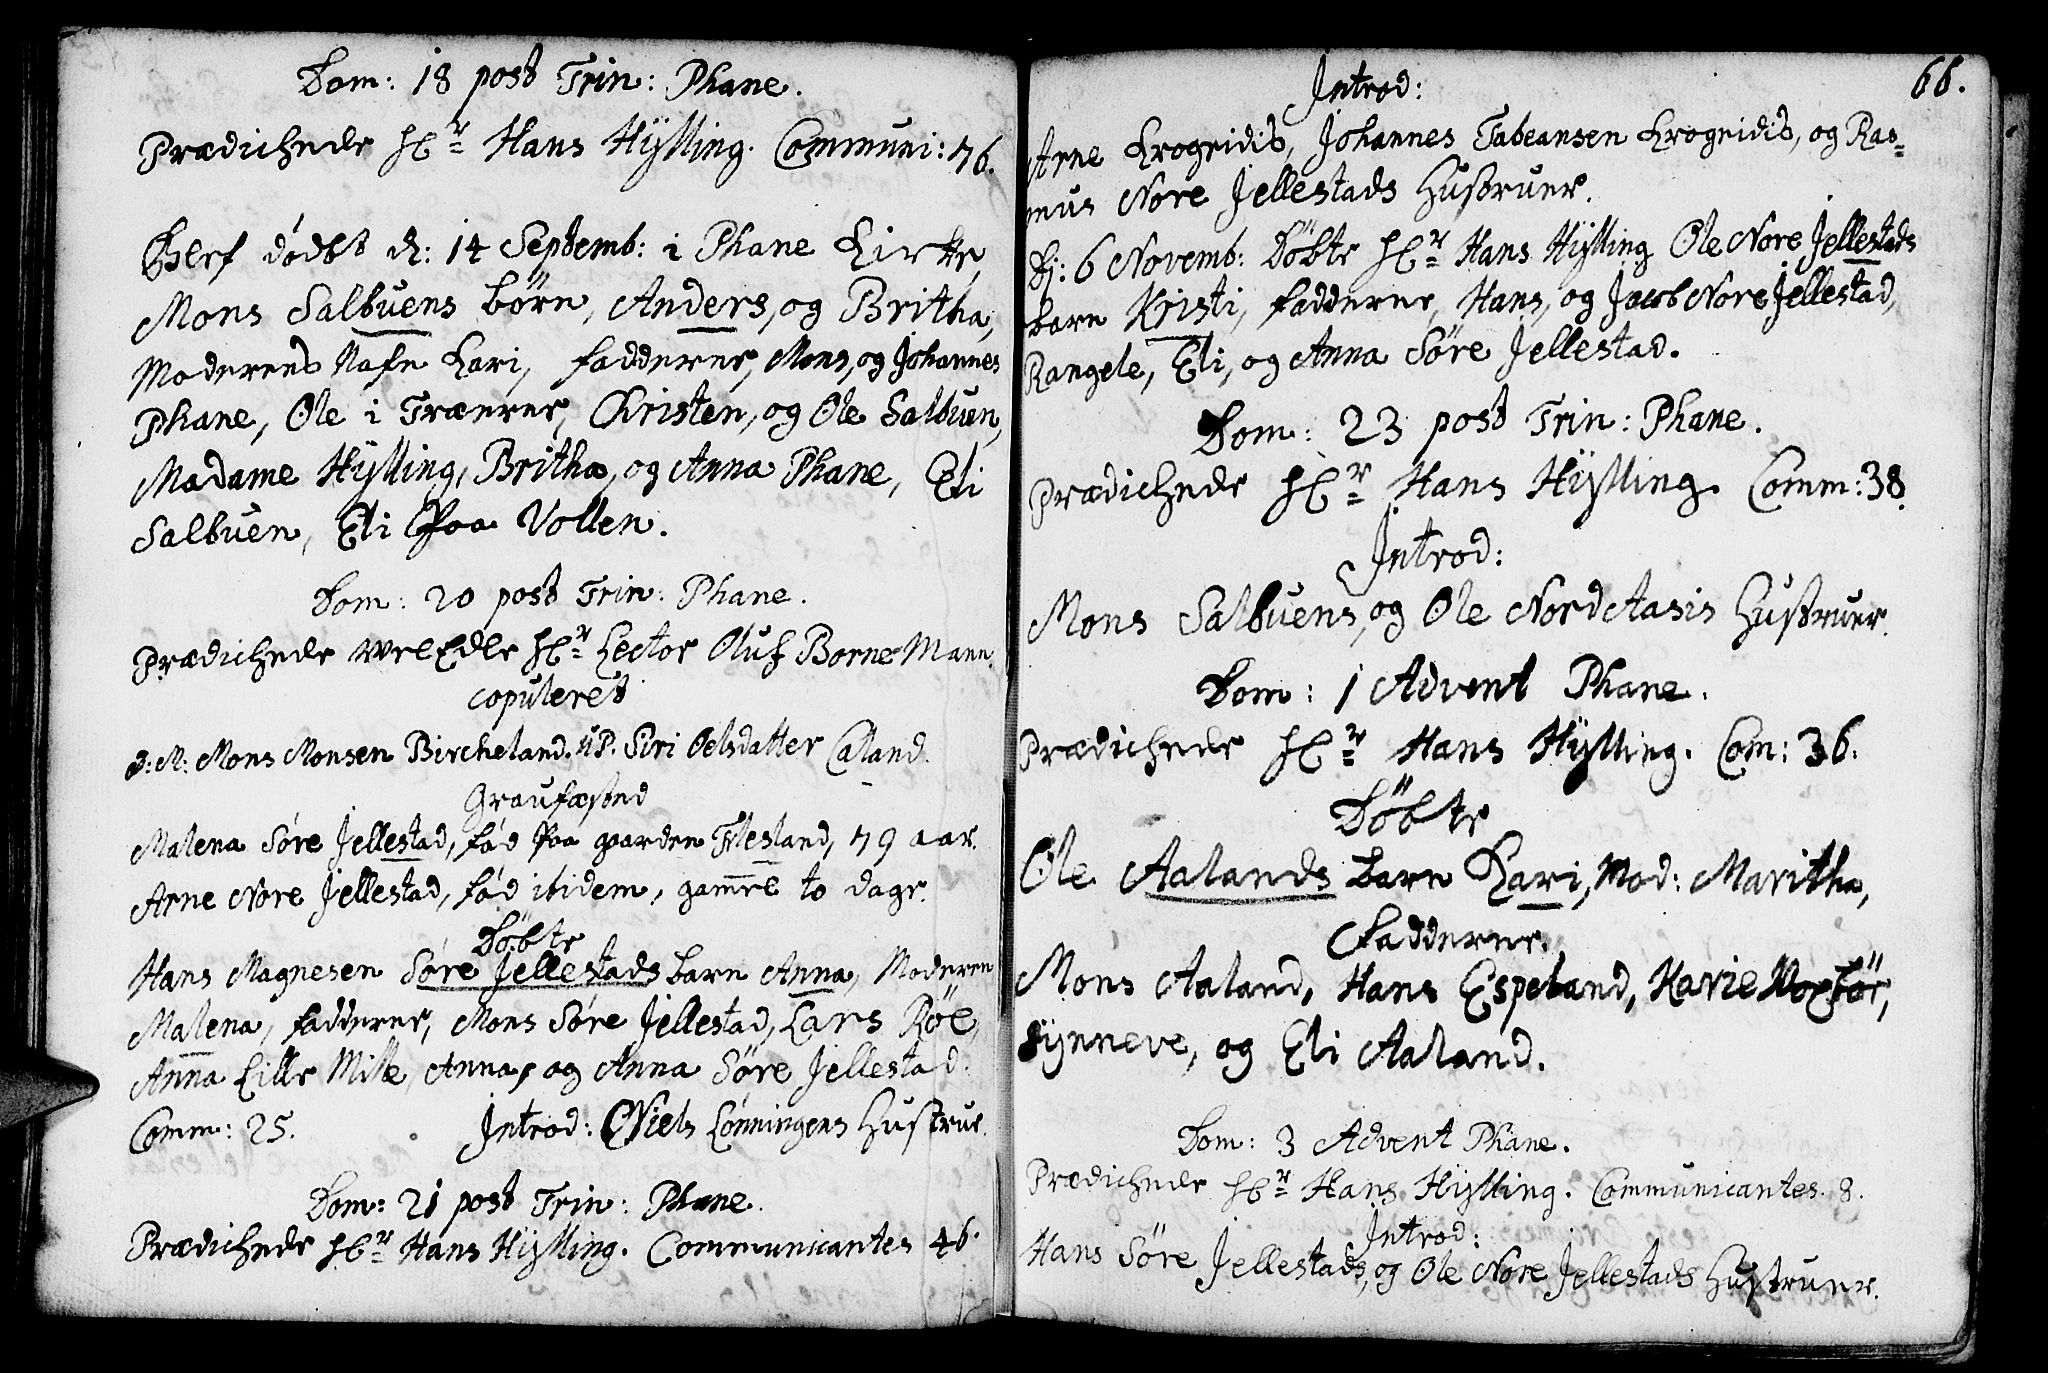 Dom: 18 post Trin: Phane.
Prædichede Hr Hans Hÿlling. Communi: 76.
Blef dødbt d: 14 Septemb: i Phane Kirke
Mons Salbuens børn, Anders, og Britha,
Moderens Nafn Kari, fadderne, Mons, og Johannes
Phane, Ole i Træerne, Christen, og Ole Salbuen,
Madame Hÿlling, Britha, og Anna Phane, Eli
Salbuen, Eli Paa Vollen.
Dom: 20 post Trin: Phane.
Prædichede WelEdle Hr Lector Oluf Borneman
copuleret
Mons Monsen Bircheland. Siri Oelsdatter Caland.
Graufæsted
Malena Søre Jellestad, fød Paa gaarden Flesland, 79 aar.
Arne Nore Jellestad, fød ibidem, gaml to dage.
Döbte
Hans Magnesen Søre Jellestads barn Anna, Moderen
Malena, fadderne, Mons Søre Jellestad, Lars Røl,
Anna Lille Milde, Anna, og Anna Søre Jellestad.
Comm: 25. Introd: Niels Lønningens Hustrue.
Dom: 21 post Trin: Phane.
Prædichede Hr Hans Hÿlling. Communicantes 46.
66.
Introd:
Arne Krogeidis, Johannes Tabeansen Krogeidis, og Ras=
mus Nore Jellestads Hustruer.
Dj: 6 Novemb: Döbte Hr Hans Hÿlling Ole Nore Jellestads
barn Kristi, fadderne, Hans, og Jacob Nore Jellestad,
Rangele, Eli, og Anna Søre Jellestad.
Dom: 23 post Trin: Phane.
Prædichede Hr Hans Hÿlling. Comm: 38.
Introd:
Mons Salbuens, og Ole NordAasis Hustruer.
Dom: 1 Advent Phane.
Prædichede Hr Hans Hÿlling. Com: 36.
Döbte
Ole Aalands barn Kari, Mod: Maritha,
Fadderne.
Mons Aaland, Hans Espeland, Karie
Sÿnneve, og Eli Aaland.
Dom: 3 Advent Phane.
Prædichede Hr Hans Hÿlling. Communicantes. 8.
Introd:
Hans Søre Jellestads, og Ole Nore Jellestads Hustruer.